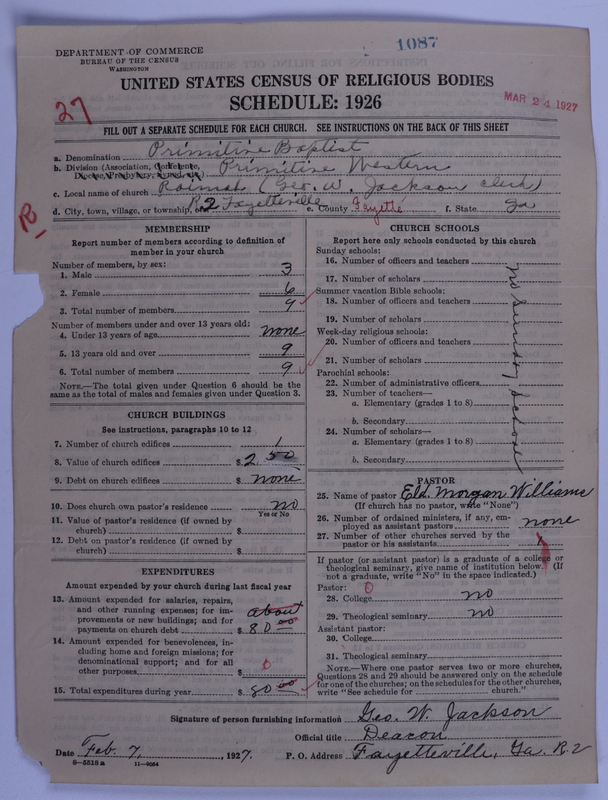 1087
DEPARTMENT OF COMMERCE
BUREAU OF THE CENSUS
WASHINGTON
UNITED STATES CENSUS OF RELIGIOUS BODIES
SCHEDULE: 1926
MAR 24 1927
27
FILL OUT A SEPARATE SCHEDULE FOR EACH CHURCH. SEE INSTRUCTIONS ON THE BACK OF THIS SHEET
a. Denomination Primitive Baptist
b. Division (Association, Conference, Primitive Western
c. Local name of church (Geo. W. Jackson clerk)
d. City, town, village, or township, R2 Fayetteville e. County Fayette f. State Ga
MEMBERSHIP
Report number of members according to definition of
member in your church
Number of members, by sex:
1. Male 3
2. Female 6
3. Total number of members 9
Number of members under and over 13 years old:
4. Under 13 years of age none
5. 13 years old and over 9
6. Total number of members 9
NOTE.—The total given under Question 6 should be the
same as the total of males and females given under Question 3.
CHURCH BUILDINGS
See instructions, paragraphs 10 to 12
7. Number of church edifices 1
8. Value of church edifices $ 2 50
9. Debt on church edifices $ none
10. Does church own pastor's residence no
Yes or No
11. Value of pastor's residence (if owned by
church) $
12. Debt on pastor's residence (if owned by
church) $
EXPENDITURES
Amount expended by your church during last fiscal year
13. Amount expended for salaries, repairs,
and other running expenses; for im-
provements or new buildings; and for
payments on church debt about $ 80 00
14. Amount expended for benevolences, in-
cluding home and foreign missions; for
denominational support; and for all
other purposes $ 0
15. Total expenditures during year $ 80 00
CHURCH SCHOOLS
Report here only schools conducted by this church
Sunday schools:
16. Number of officers and teachers
17. Number of scholars
Summer vacation Bible schools:
18. Number of officers and teachers
19. Number of scholars
Week-day religious schools:
20. Number of officers and teachers
21. Number of scholars
Parochial schools:
22. Number of administrative officers
23. Number of teachers—
a. Elementary (grades 1 to 8)
b. Secondary
24. Number of scholars—
a. Elementary (grades 1 to 8)
b. Secondary
no Sunday School
PASTOR
25. Name of pastor Eld. Morgan Williams
(If church has no pastor, write "None")
26. Number of ordained ministers, if any, em-
ployed as assistant pastors none
27. Number of other churches served by the
pastor or his assistants
If pastor (or assistant pastor) is a graduate of a college or
theological seminary, give name of institution below. (If
not a graduate, write "No" in the space indicated.)
Pastor: 0
28. College no
29. Theological seminary no
Assistant pastor:
30. College
31. Theological seminary
NOTE.—Where one pastor serves two or more churches,
Questions 28 and 29 should be answered only on the schedule
for one of the churches; on the schedules for the other churches,
write "See schedule for church."
Signature of person furnishing information Geo. W. Jackson
Official title Deacon
Date Feb. 7, 1927. P. O. Address Fayetteville, Ga. R2
8—5518 a 11—9064